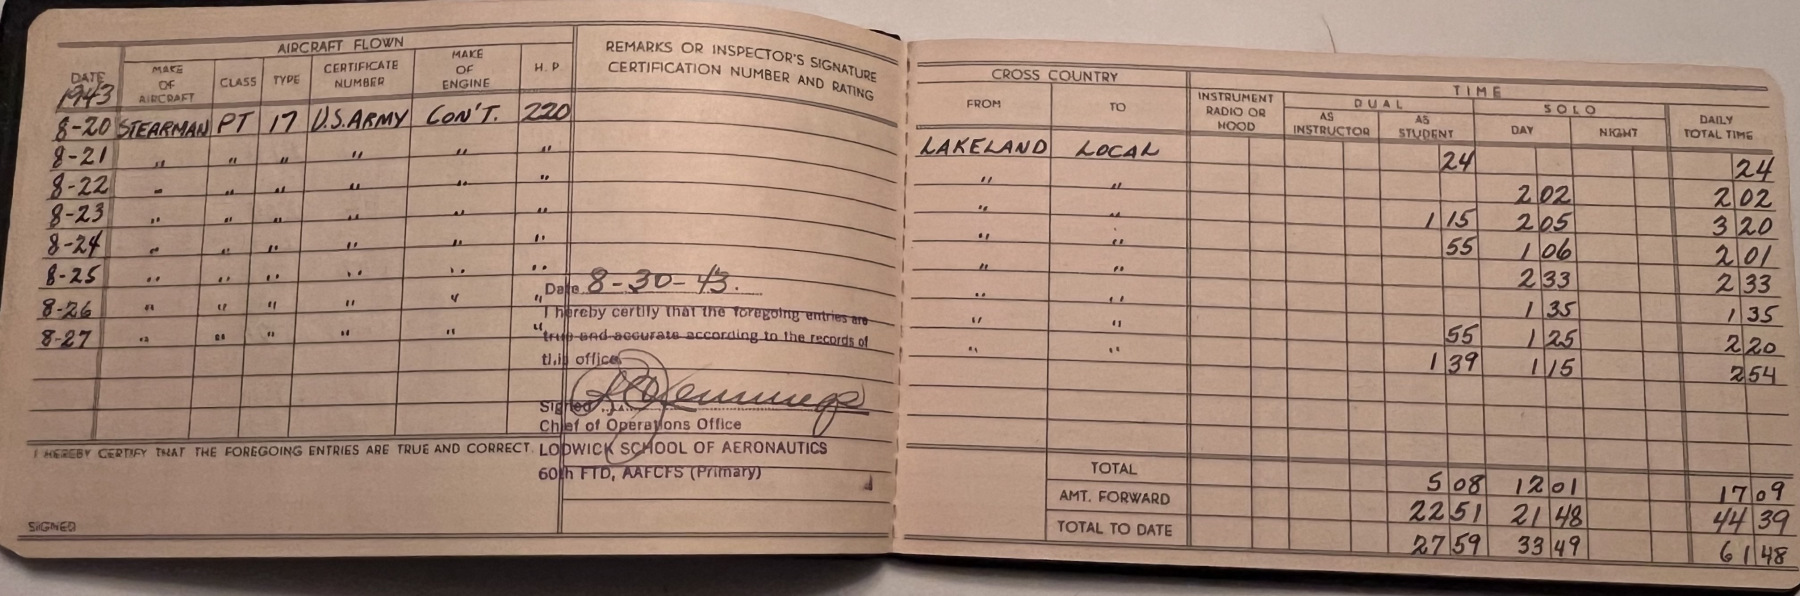 AIRCRAFT FLOWN
DATE 1943 MAKE OF AIRCRAFT CLASS TYPE CERTIFICATE NUMBER MAKE OF ENGINE H. P.
REMARKS OR INSPECTOR'S SIGNATURE
CERTIFICATION NUMBER AND RATING
8-20 STEARMAN PT 17 U.S. ARMY CON'T. 220
8-21 " " " " " "
8-22 " " " " " "
8-23 " " " " " "
8-24 " " " " " "
8-25 " " " " " "
8-26 " " " " " "
8-27 " " " " " "
Date 8-30-43.
I hereby certify that the foregoing entries are
true and accurate according to the records of
this office.
Signed
Chief of Operations Office
LODWICK SCHOOL OF AERONAUTICS
60th FTD, AAFCFS (Primary)
I HEREBY CERTIFY THAT THE FOREGOING ENTRIES ARE TRUE AND CORRECT.
SIGNED
CROSS COUNTRY
FROM TO
TIME
INSTRUMENT RADIO OR HOOD
DUAL
AS INSTRUCTOR AS STUDENT
SOLO
DAY NIGHT
DAILY TOTAL TIME
LAKELAND LOCAL 24 24
" " 2 02 2 02
" " 1 15 2 05 3 20
" " 55 1 06 2 01
" " 2 33 2 33
" " 1 35 1 35
" " 55 1 25 2 20
" " 1 39 1 15 2 54
TOTAL 5 08 12 01 17 09
AMT. FORWARD 22 51 21 48 44 39
TOTAL TO DATE 27 59 33 49 61 48